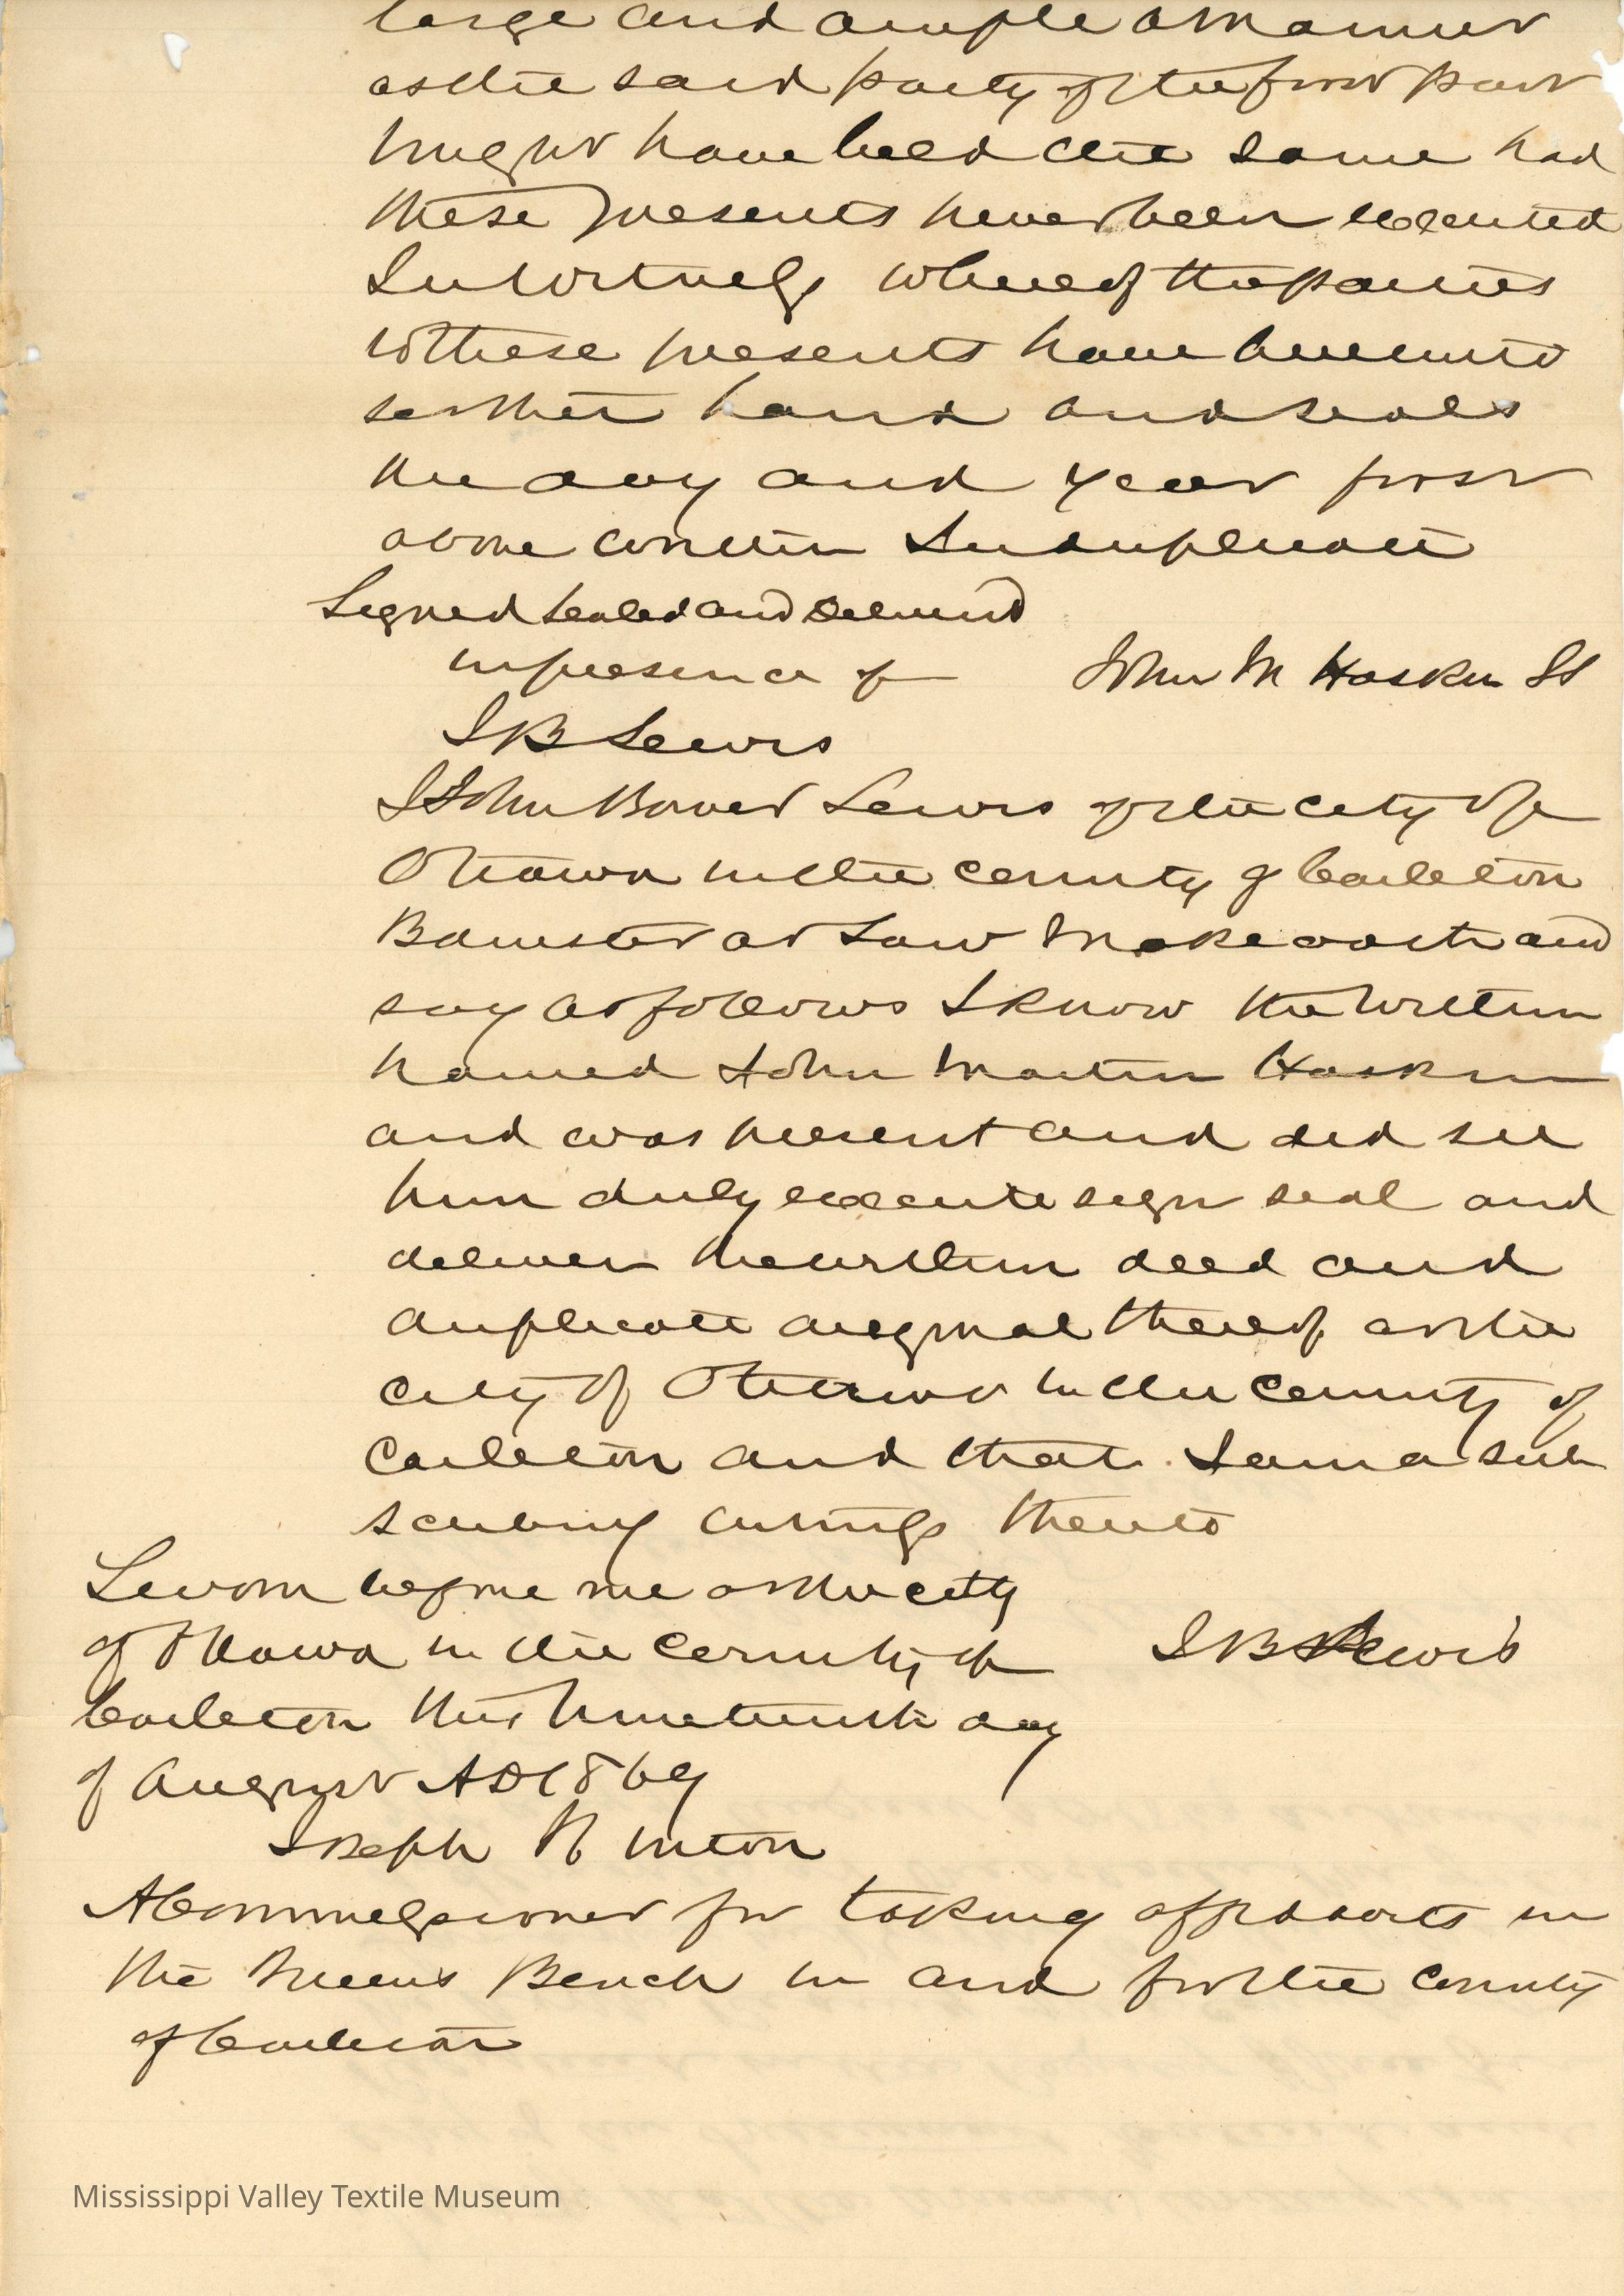 large and ample a manner
as the said party of the first part
might have held the same had
these presents never been executed
In Witness whereof the parties
to these presents have hereunto
set their hand and seals
the day and year first
above written In duplicate
Signed Sealed and Delivered
in presence of John M Haskin LS
J B Lewis
I John Bower Lewis of the city of
Ottawa in the county of Carleton
Barrister at Law make oath and
say as follows I know the within
named John Martin Haskin
and was present and did see
him duly execute sign seal and
deliver the within deed and
duplicate original thereof at the
city of Ottawa in the county of
Carleton and that I am a sub
scribing witness thereto
Sworn before me at the city
of Ottawa in the county of J B Lewis
Carleton this Nineteenth day
of August AD 1869
Joseph
A Commissioner for taking affidavits in
the Queens Bench in and for the county
of Carleton
Mississippi Valley Textile Museum